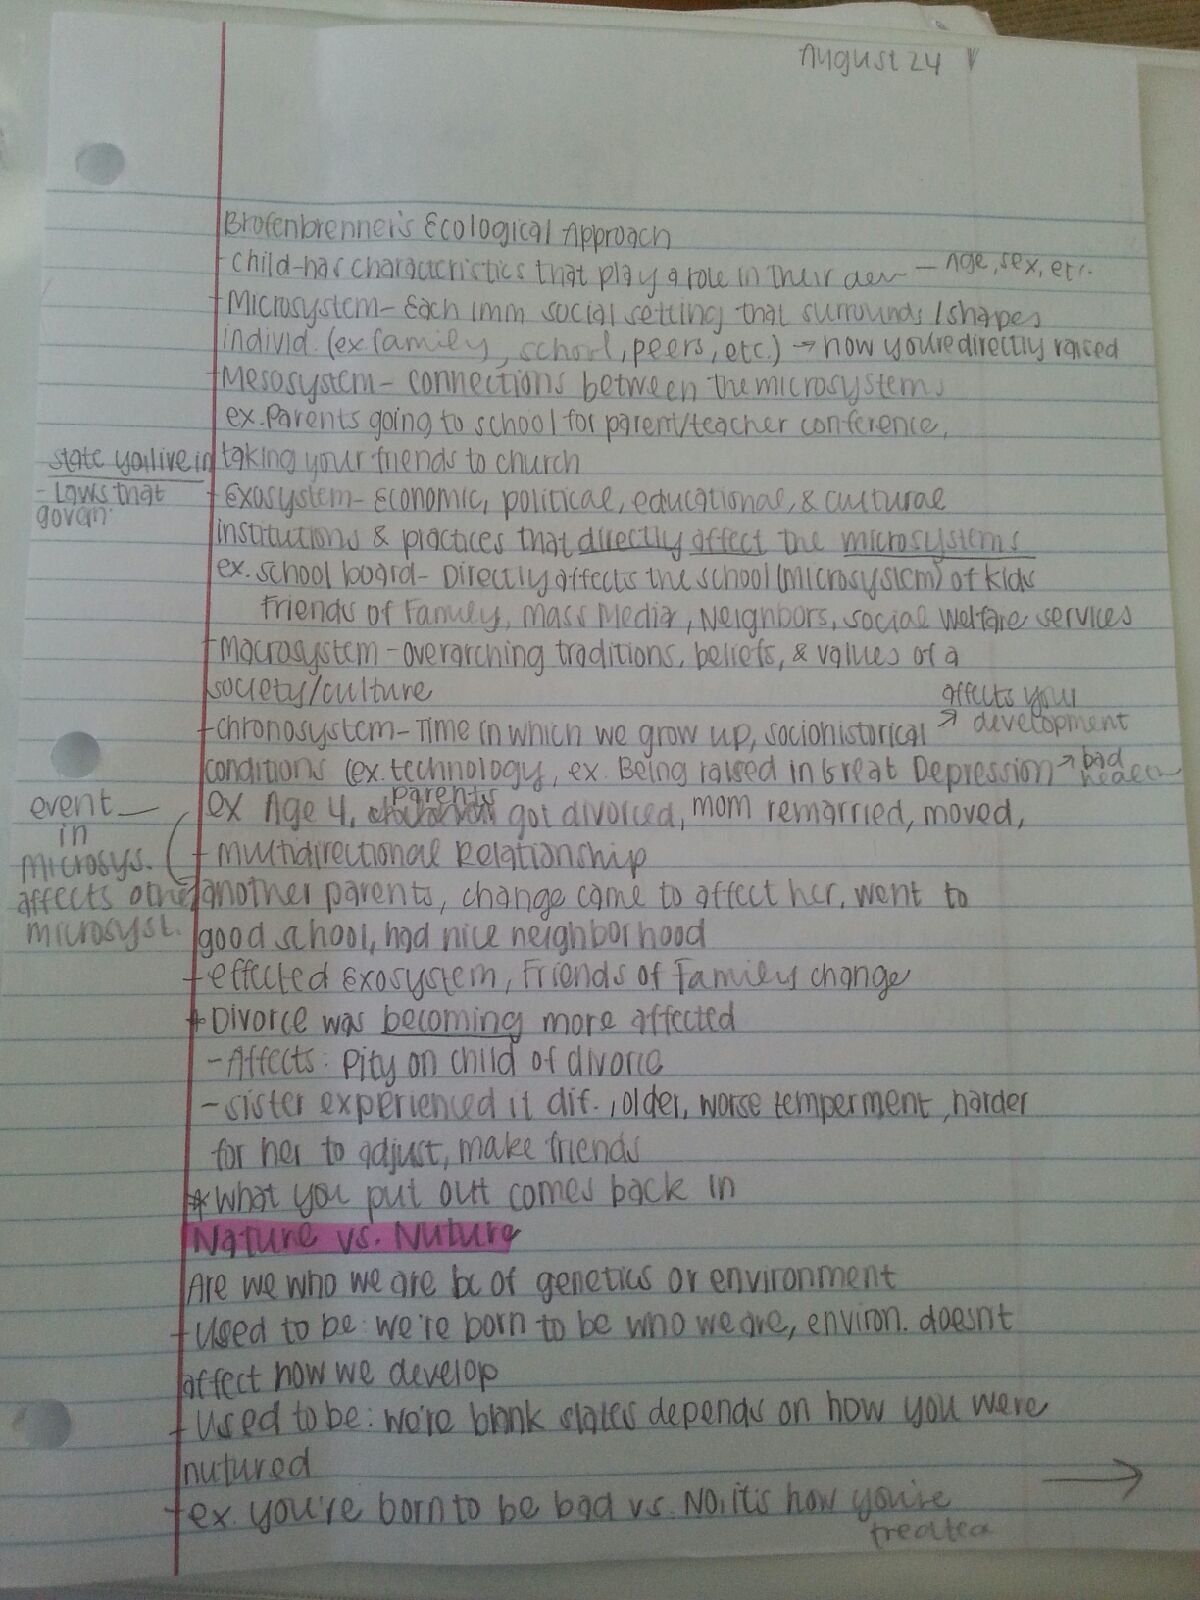 August 24
Brofenbrenner's Ecological Approach
-Child-has characteristics that play a role in their dev — Age, sex, etc.
-Microsystem- Each imm social setting that surrounds/shapes
individ. (ex. family, school, peers, etc.) → how you're directly raised
-Mesosystem- connections between the microsystems
ex. Parents going to school for parent/teacher conference,
taking your friends to church
state you live in
- Laws that
govern
-Exosystem- Economic, political, educational, & cultural
institutions & practices that directly affect the microsystems
ex. school board- Directly affects the school (microsystem) of kids
Friends of Family, Mass Media, Neighbors, social welfare services
-Macrosystem -overarching traditions, beliefs, & values of a
society/culture
-chronosystem- Time in which we grow up, sociohistorical → affects your
development
conditions (ex. technology, ex. Being raised in Great Depression → bad
health
ex Age 4, parents got divorced, mom remarried, moved,
event —
in
microsys.
affects other
microsyst.
- multidirectional Relationship
another parents, change came to affect her, went to
good school, had nice neighborhood
- effected Exosystem, Friends of Family change
* Divorce was becoming more affected
- Affects: Pity on child of divorce
- sister experienced it dif., older, worse temperment, harder
for her to adjust, make friends
* what you put out comes back in
Nature vs. Nuture
Are we who we are bc of genetics or environment
- Used to be: we're born to be who we are, environ. doesn't
affect how we develop
- Used to be: we're blank slates depends on how you were
nutured
- ex. you're born to be bad vs. No, it's how you're
treated
→